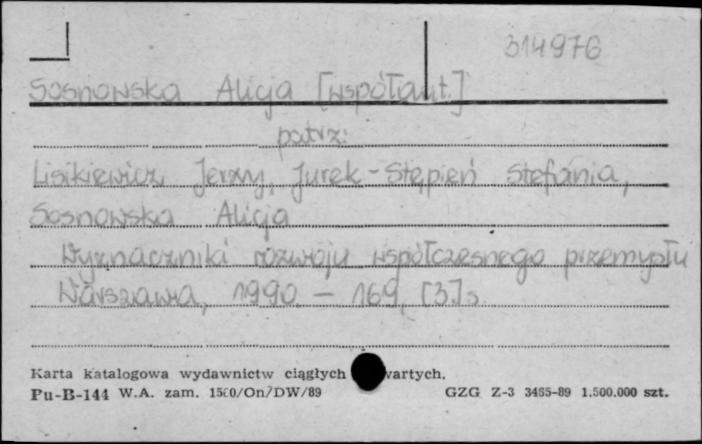 314976
Sosnowska Alicja [współaut.]
patrz:
Lisikiewicz Jerzy, Jurek-Stępień Stefania,
Sosnowska Alicja
Wyznaczniki rozwoju współczesnego przemysłu
Warszawa, 1990. – 169, [3] s.
Karta katalogowa wydawnictw ciągłych wartych.
Pu-B-144 W.A. zam. /DW/89 GZG Z-3 3455-89 1.500.000 szt.